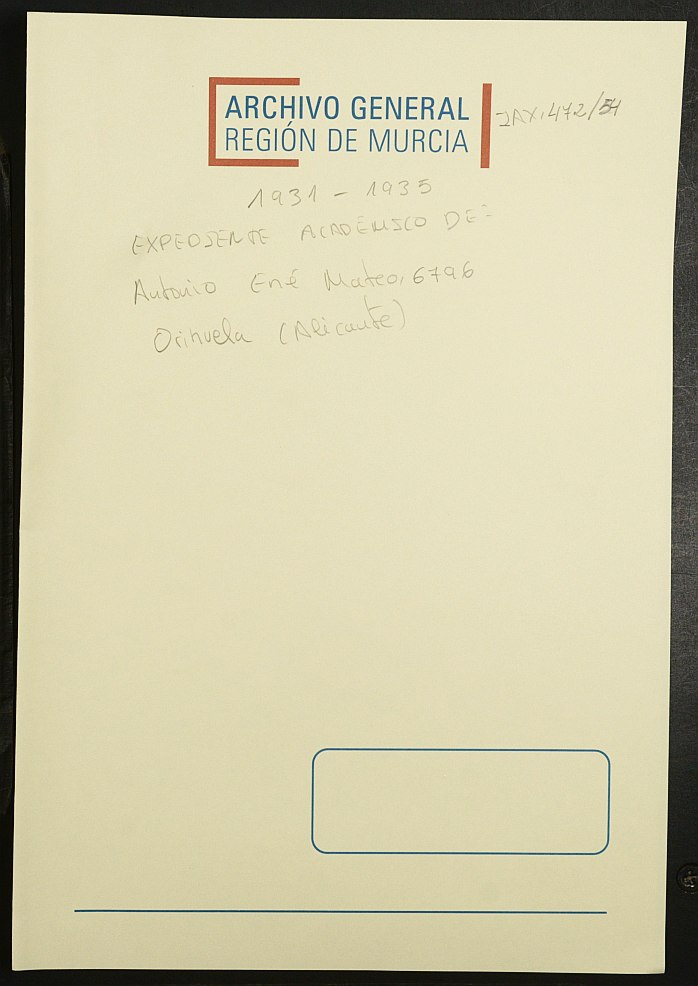 ARCHIVO GENERAL
REGIÓN DE MURCIA
JAX,472/54
1931 - 1935
EXPEDIENTE ACADEMICO DE:
Antonio Ené Mateo, 6796
Orihuela (Alicante)